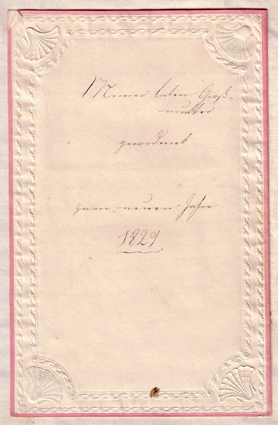 Meiner lieben Groß-
mutter
gewidmet
zum neuen Jahre
1829